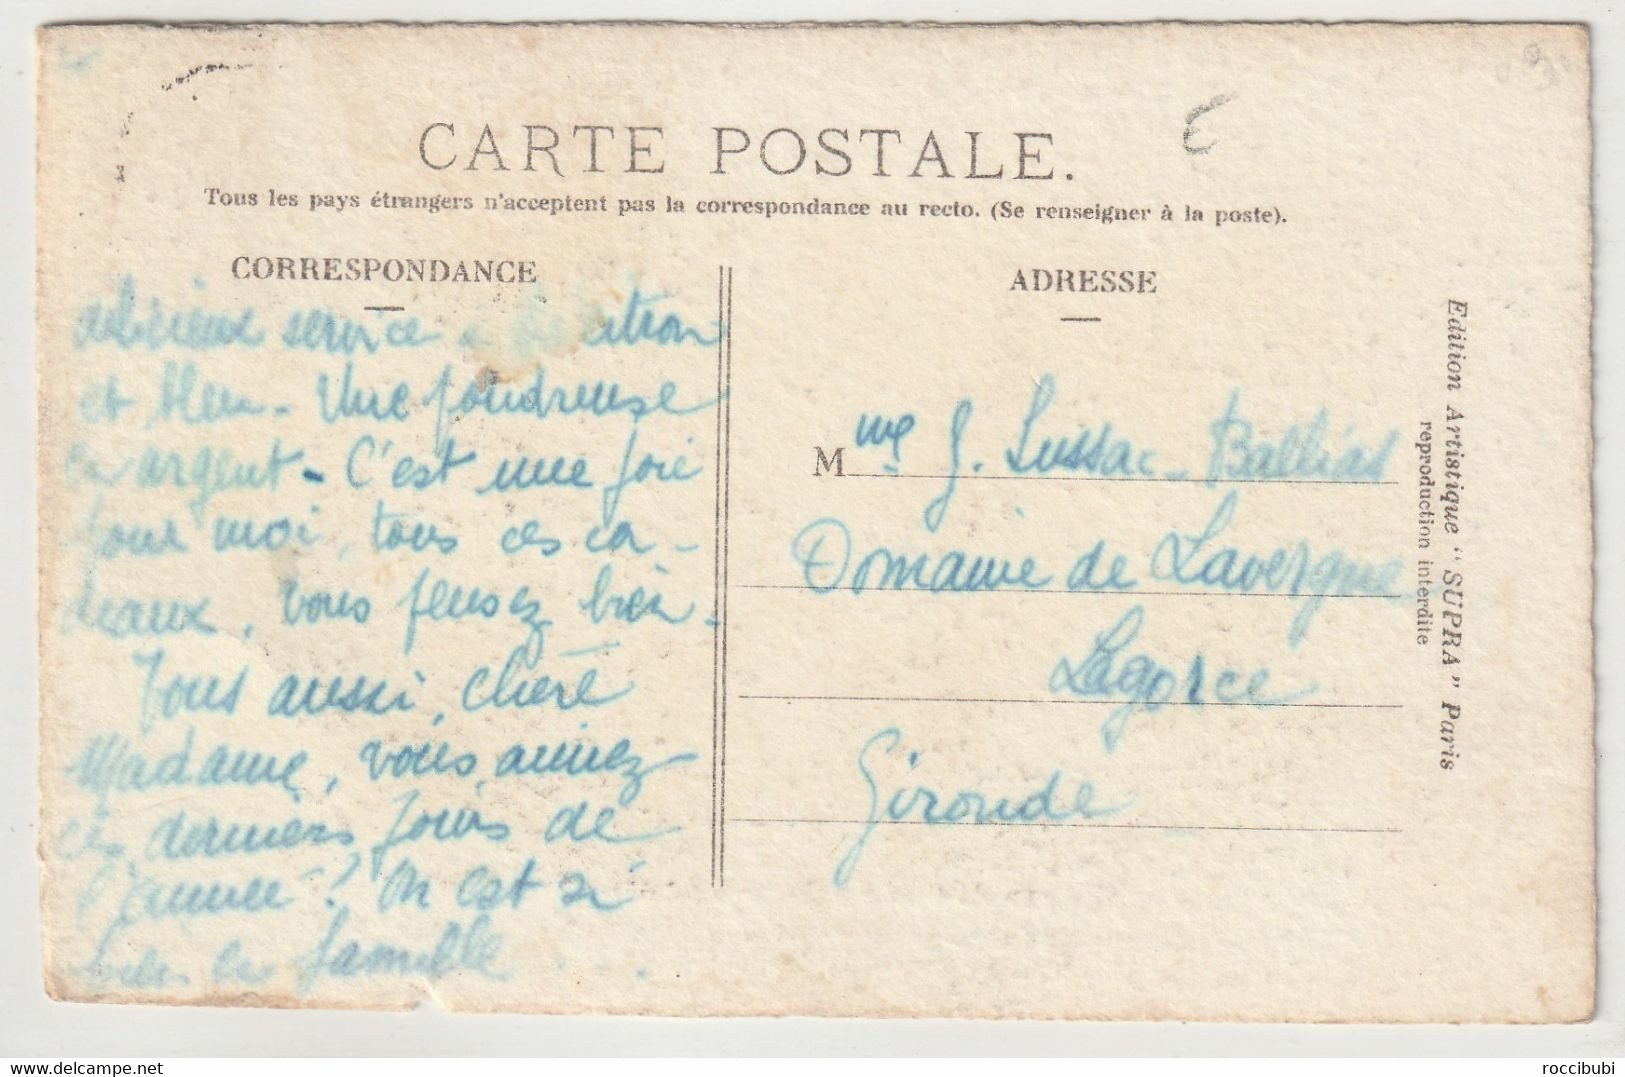 CARTE POSTALE.
Tous les pays étrangers n'acceptent pas la correspondance au recto. (Se renseigner à la poste).
CORRESPONDANCE
service
et bleu - Une poudreuse
en argent - C'est une joie
pour moi, tous ces ca-
deaux, vous pensez bien.
Vous aussi, chère
Madame, vous aimez
ces derniers jours de
l'année ? On est si
bien en famille
ADRESSE
Mme G. Lussac-Bellias
Domaine de Lavergne
Lagorce
Gironde
Edition Artistique "SUPRA" Paris
reproduction interdite
delcampe.net
roccibubi